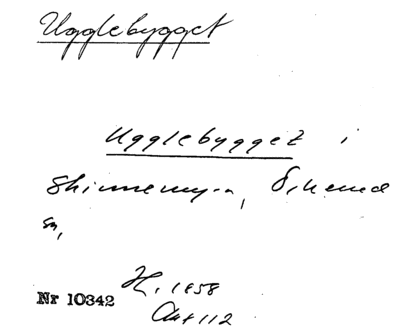 Ugglebygget
Ugglebygget i
Skinnemyra, Ökened
sn,
H. 1858
Akt 112
Nr 10342